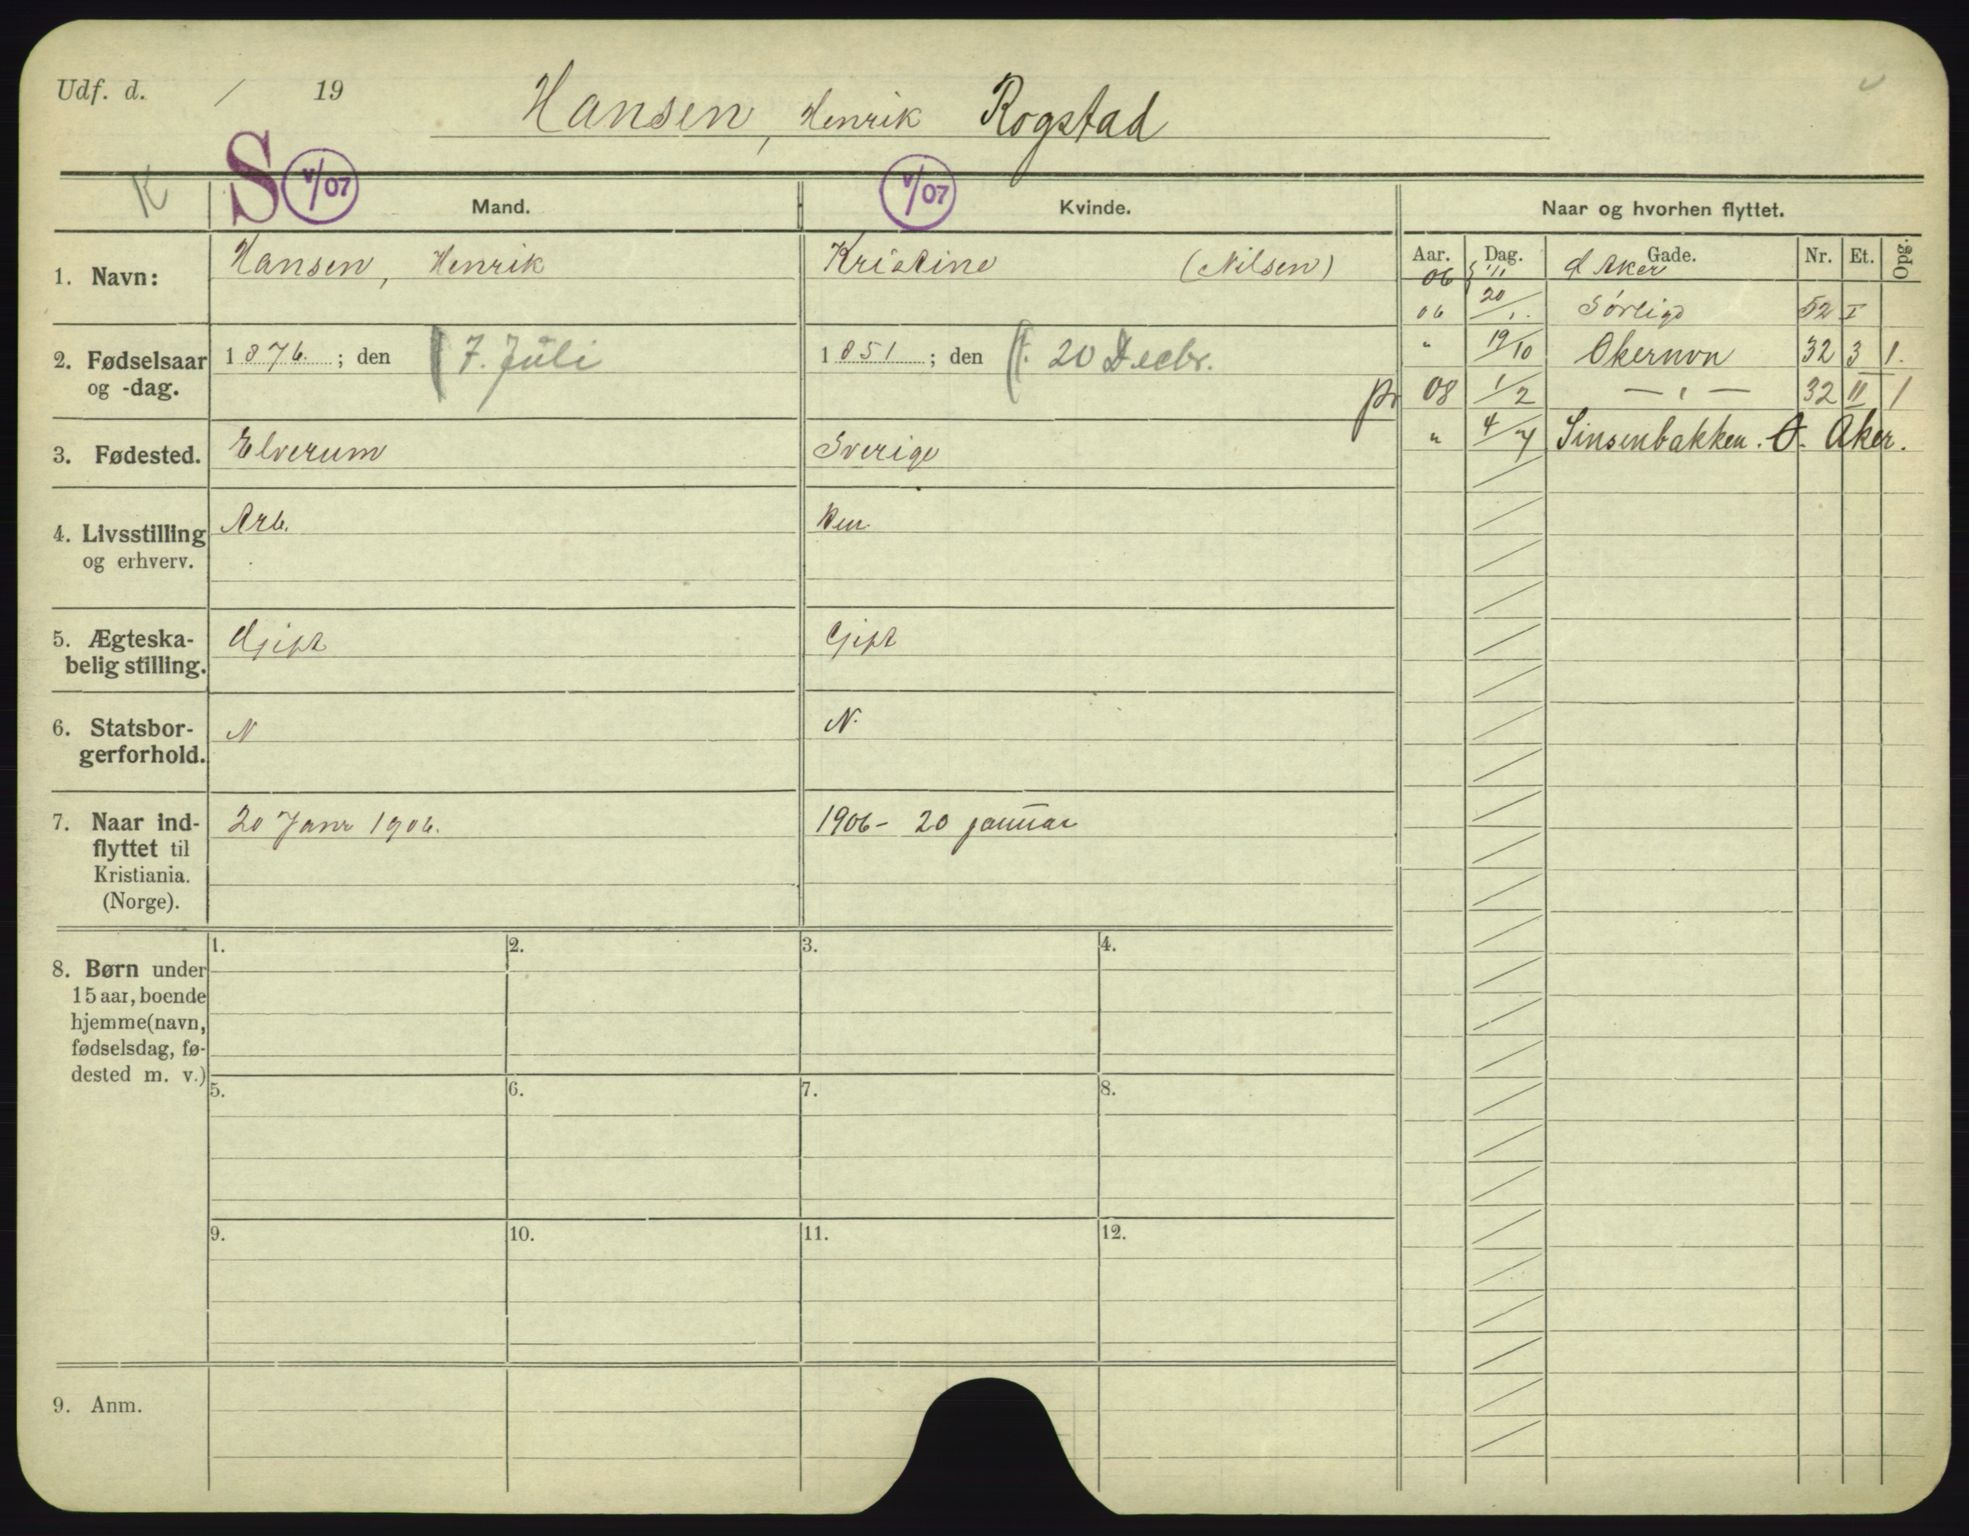 Udf. d. / 19
Hansen, Henrik Rogstad
K S V/07 Mand. V/07 Kvinde. Naar og hvorhen flyttet.
Aar. Dag. Gade. Nr. Et. Opg.
1. Navn: Hansen, Henrik Kristine (Nilsen)
06 1/11 Aker
06 20/1. Sørligd 52 I
" 19/10 Økernvn 32 3 1.
08 1/2 — " — 32 II 1
" 4/7 Sinsenbakken. Ø. Aker.
2. Fødselsaar 1876. ; den 7. Juli 1851 ; den 20 Decbr.
og -dag.
3. Fødested. Elverum Sverige
4. Livsstilling Arb.
og erhverv.
5. Ægteska- Gift Gift
belig stilling.
6. Statsbor- N N.
gerforhold.
7. Naar ind- 20 Janr 1906. 1906 - 20 januar
flyttet til
Kristiania.
(Norge).
1. 2. 3. 4.
8. Børn under
15 aar, boende
hjemme (navn,
fødselsdag, fø-
dested m. v.)
5. 6. 7. 8.
9. 10. 11. 12.
9. Anm.